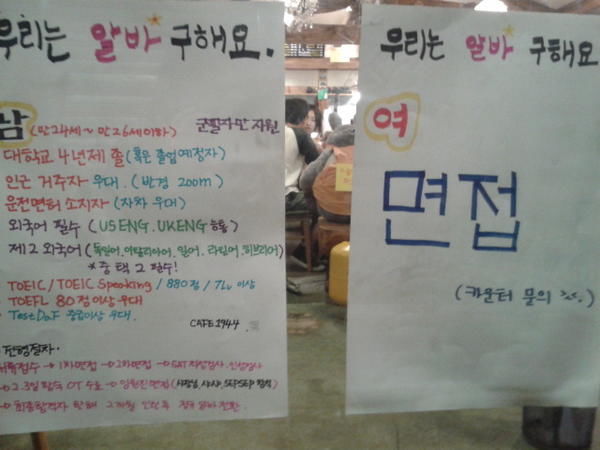 우리는 알바 구해요.
남 (만 24세 ~ 만 26세 이하) 군필자만 지원
대학교 4년제 졸 (혹은 졸업예정자)
인근 거주자 우대. (반경 200m)
운전면허 소지자 (자차 우대)
외국어 필수 (US ENG. UK ENG 능통)
제 2 외국어 (독일어. 이탈리아어. 일어. 라틴어. 히브리어)
* 중 택 2 필수!
TOEIC / TOEIC Speaking / 880점 / 7Lv 이상
TOEFL 80점 이상 우대
TestDaF 중급이상 우대.
CAFE 1944
전형절차.
서류접수 → 1차면접 → 2차면접 → SAT 직무검사. 인성검사
→ 2.3일 합숙 OT 수료 → 임원진 면접
→ 최종합격자 한해 2개월 인턴 후 정규 알바 전환.
우리는 알바 구해요
여
면접
(카운터 문의)